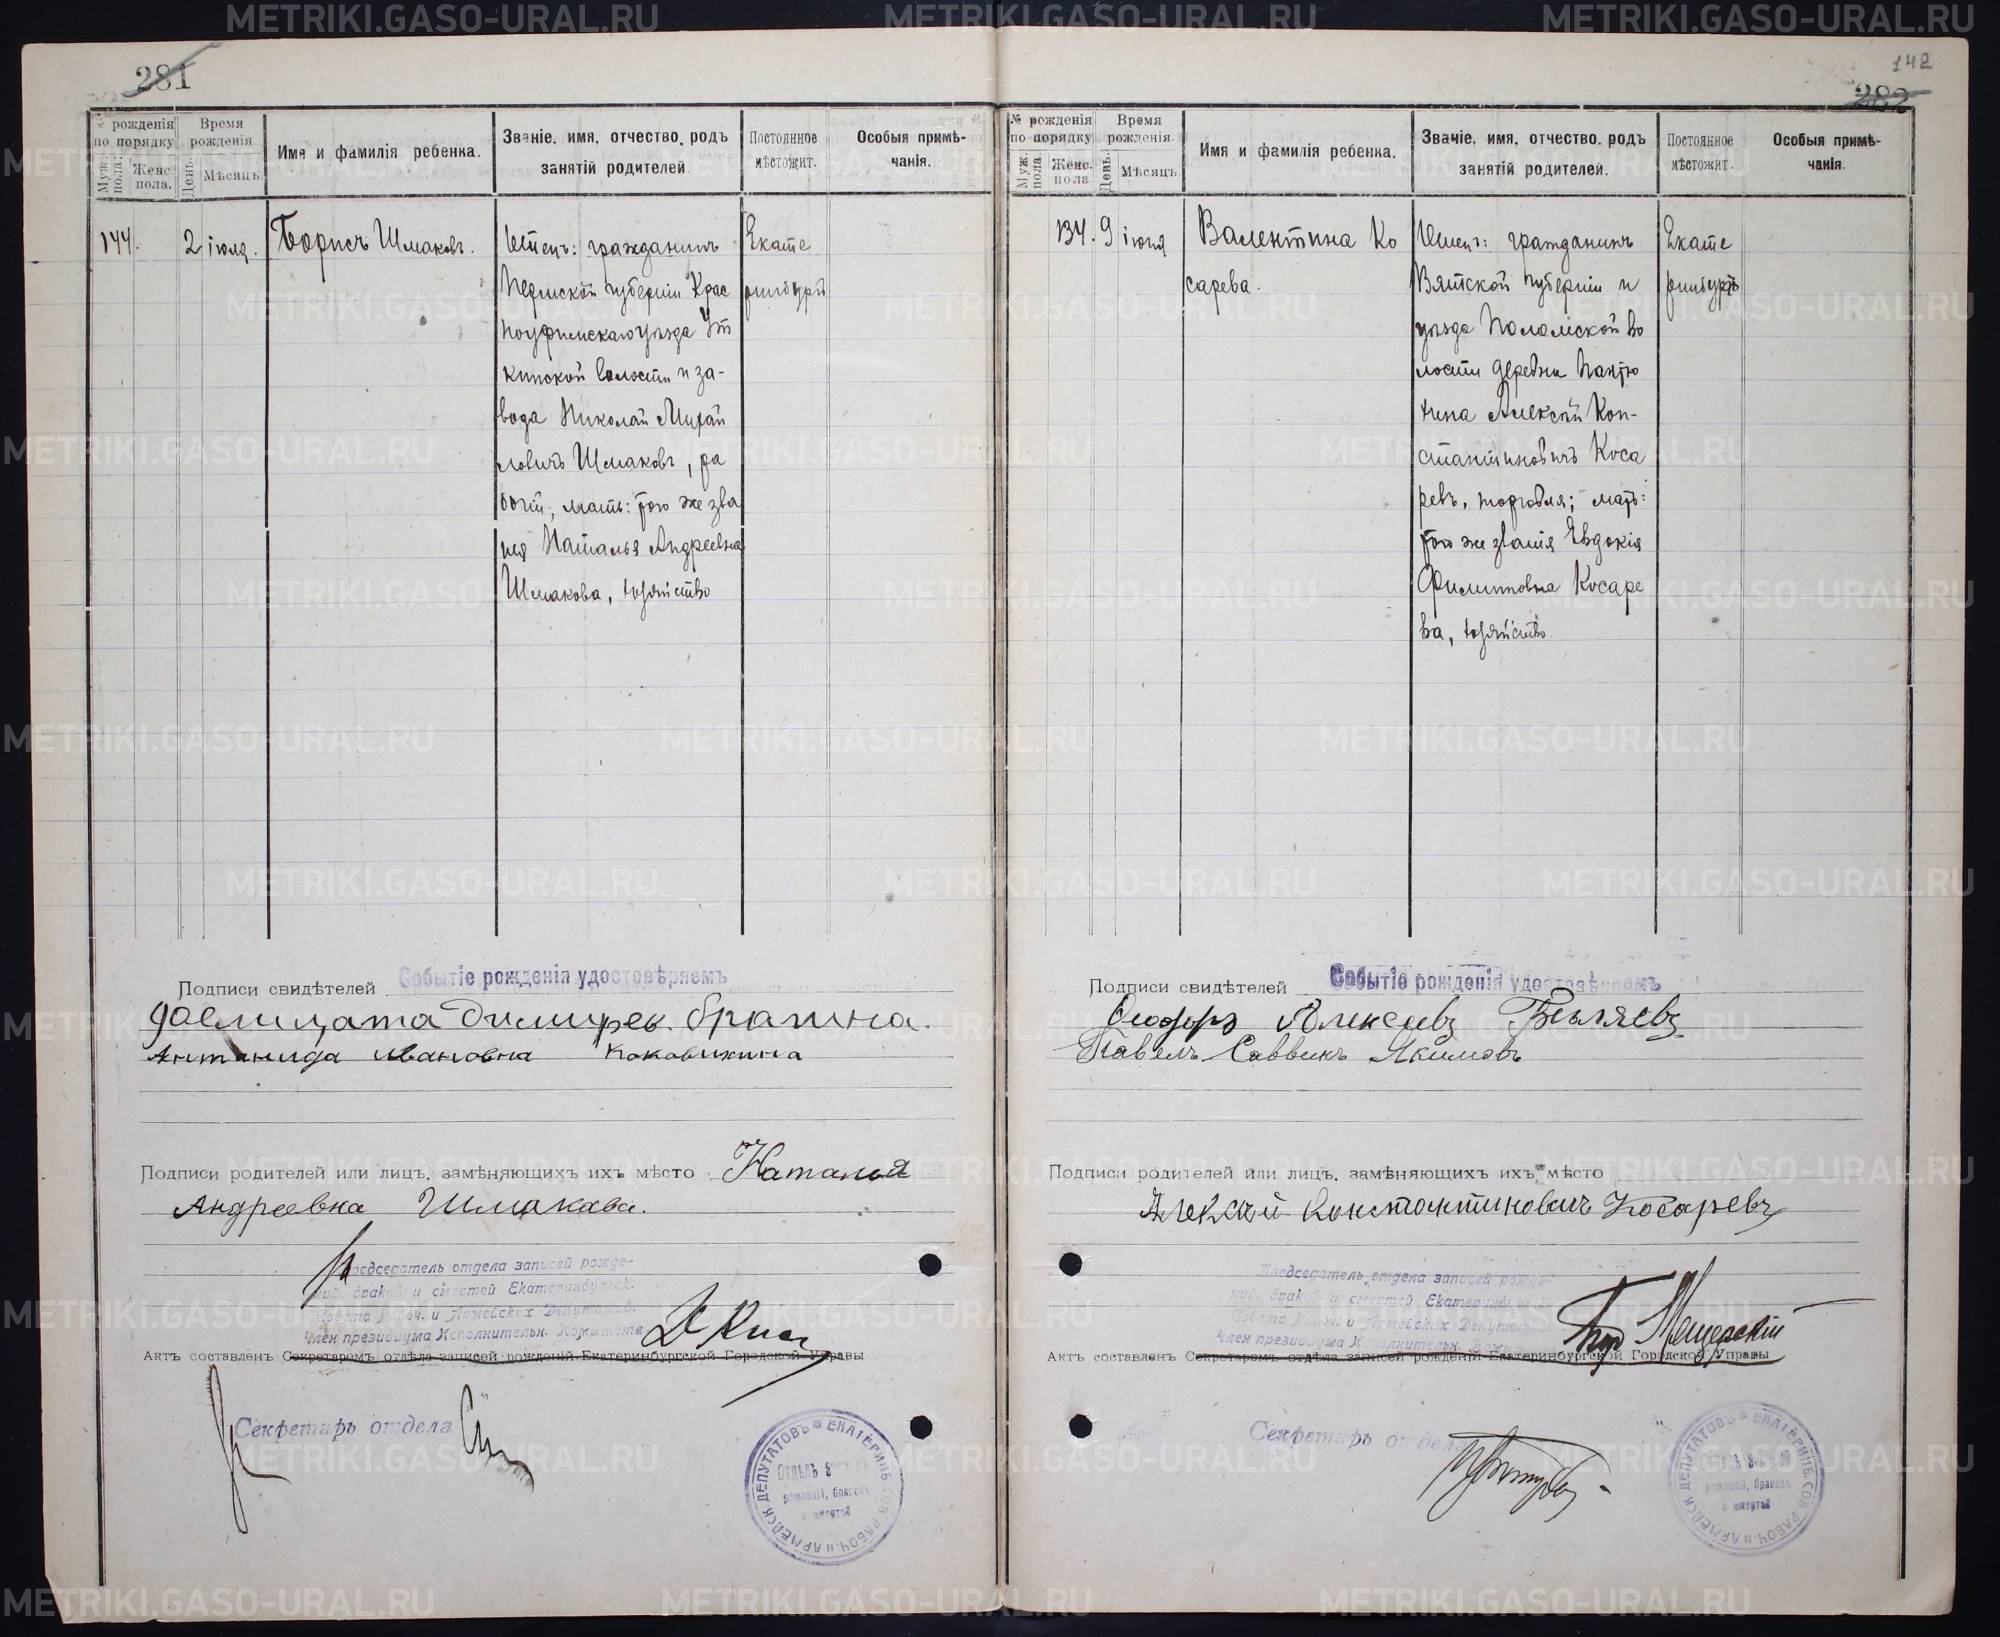 281
№ рождения
по порядку
Муж. пола.
Женс. пола.
Время рождения
День.
Мѣсяцъ.
Имя и фамилія ребенка.
Званіе, имя, отчество, родъ
занятій родителей.
Постоянное
мѣстожит.
Особыя примѣ-
чанія.
144.
2
іюля.
Борисъ Шмаковъ.
Отецъ: гражданинъ
Пермской губерніи Крас
ноуфимскаго уѣзда Ут
кинской волости и за-
вода Николай Михай
ловичъ Шмаковъ, ра
бочій, мать: того же зва
нія Наталья Андреевна
Шмакова, хозяйство
Екате
ринбургъ
Подписи свидѣтелей Событіе рожденія удостовѣряемъ
Фелицата Димитрев. брагина.
Антанида Ивановна Коковихина
Подписи родителей или лицъ, замѣняющихъ ихъ мѣсто Наталья
Андреевна Шмакова.
Председатель отдела записей рожде-
ний, браков и смертей Екатеринбургск.
Совета Рабоч. и Армейских Депутатов.
Член президиума Исполнительн. Комитета
Актъ составленъ Секретаромъ отдѣла записей рожденій Екатеринбургской Городской Управы
Секретарь отдела
ЕКАТЕРИНБ. СОВ. РАБОЧ. И АРМЕЙСК. ДЕПУТАТОВЪ
Отдѣлъ
рожденій, браковъ
и смертей
142
282
№ рождения
по порядку
Муж. пола.
Женс. пола
Время рожденія.
День.
Мѣсяцъ.
Имя и фамилія ребенка.
Званіе, имя, отчество, родъ
занятій родителей.
Постоянное
мѣстожит.
Особыя примѣ-
чанія.
134.
9
іюля
Валентина Ко
сарева.
Отецъ: гражданинъ
Вятской губерніи и
уѣзда Поломской во
лости деревни Пантю
хина Алексѣй Кон-
стантиновичъ Коса
ревъ, торговля; мать:
того же званія Евдокія
Филипповна Косаре
ва, хозяйство.
Екате
ринбургъ
Подписи свидѣтелей Событіе рожденія удостовѣряемъ
Феодоръ Алексѣевъ Бѣляевъ
Павелъ Саввинъ Якимовъ
Подписи родителей или лицъ, замѣняющихъ ихъ мѣсто
Алексѣй Константиновичъ Косаревъ
Председатель отдела записей рожде-
ний, браков и смертей Екатеринбургск.
Совета Рабоч. и Армейских Депутатов
Член президиума Исполнительн. Комитета
Мещерскій
Актъ составленъ Секретаромъ отдѣла записей рожденій Екатеринбургской Городской Управы
Секретарь отдела
ЕКАТЕРИНБ. СОВ. РАБОЧ. И АРМЕЙСК. ДЕПУТАТОВЪ
рожденій, браковъ
и смертей
METRIKI.GASO-URAL.RU